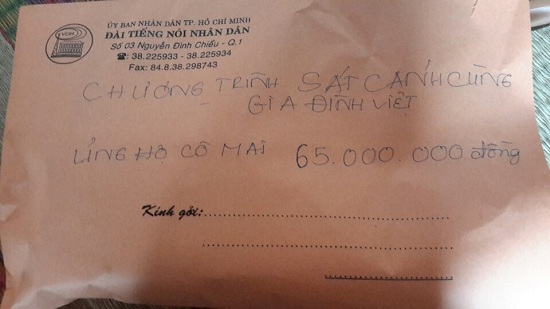 VOH
ỦY BAN NHÂN DÂN TP. HỒ CHÍ MINH
ĐÀI TIẾNG NÓI NHÂN DÂN
Số 03 Nguyễn Đình Chiểu - Q.1
☎: 38.225933 - 38.225934
Fax: 84.8.38.298743
CHƯƠNG TRÌNH SÁT CÁNH CÙNG
GIA ĐÌNH VIỆT
ỦNG HỘ CÔ MAI 65.000.000 đồng
Kính gởi: